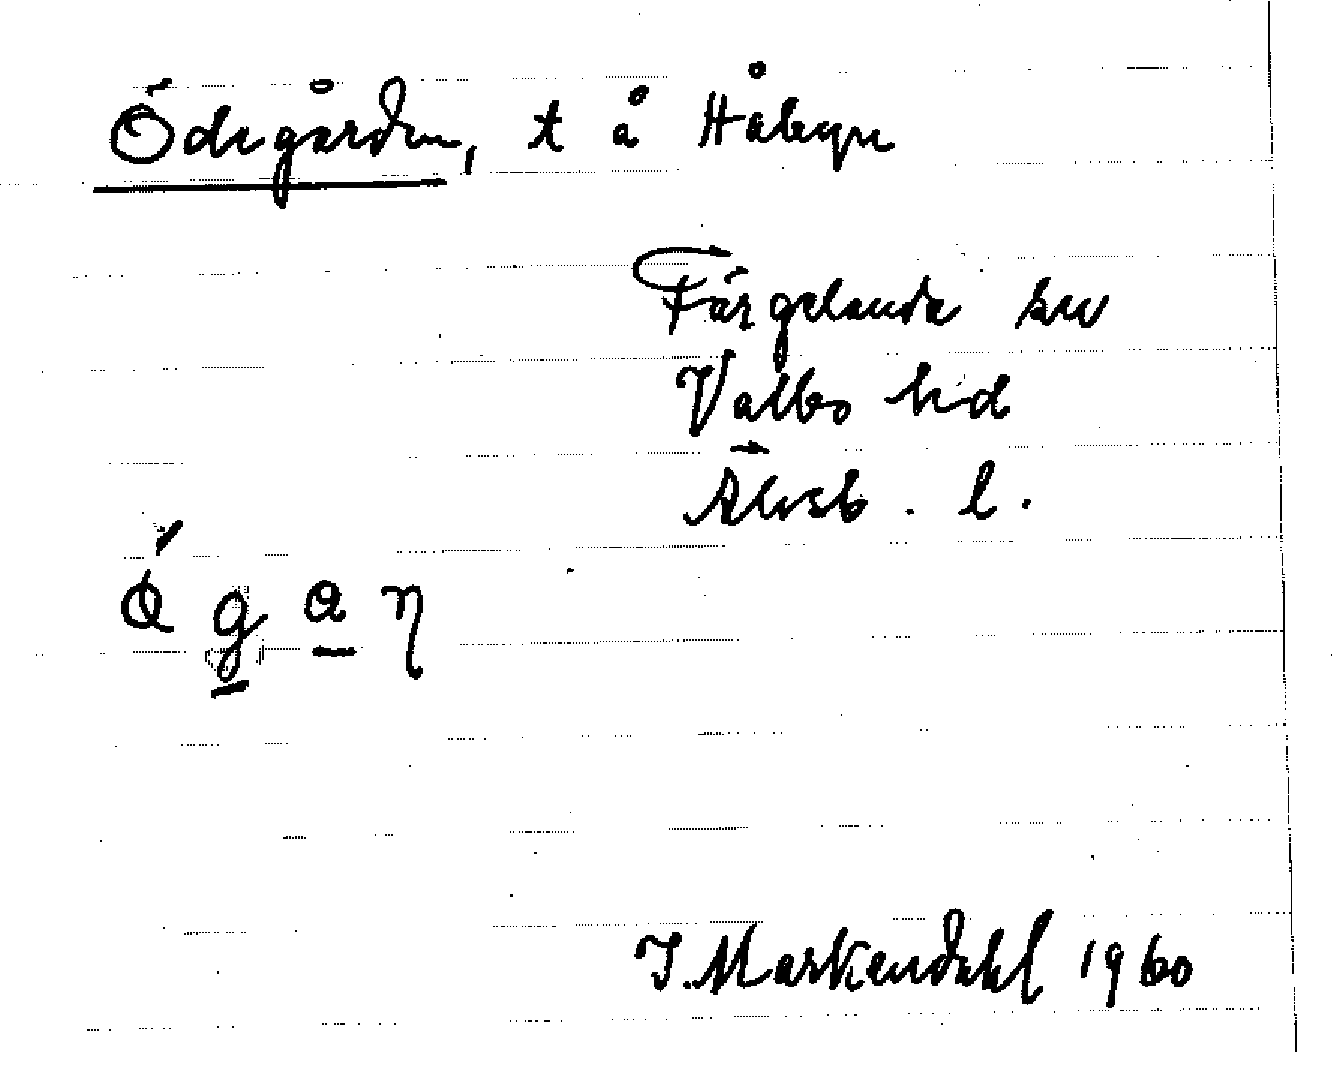 Ödegården, t å Håbyn
Färgelanda sn
Valbo hd
Älvsb. l.
I. Markendahl 1960